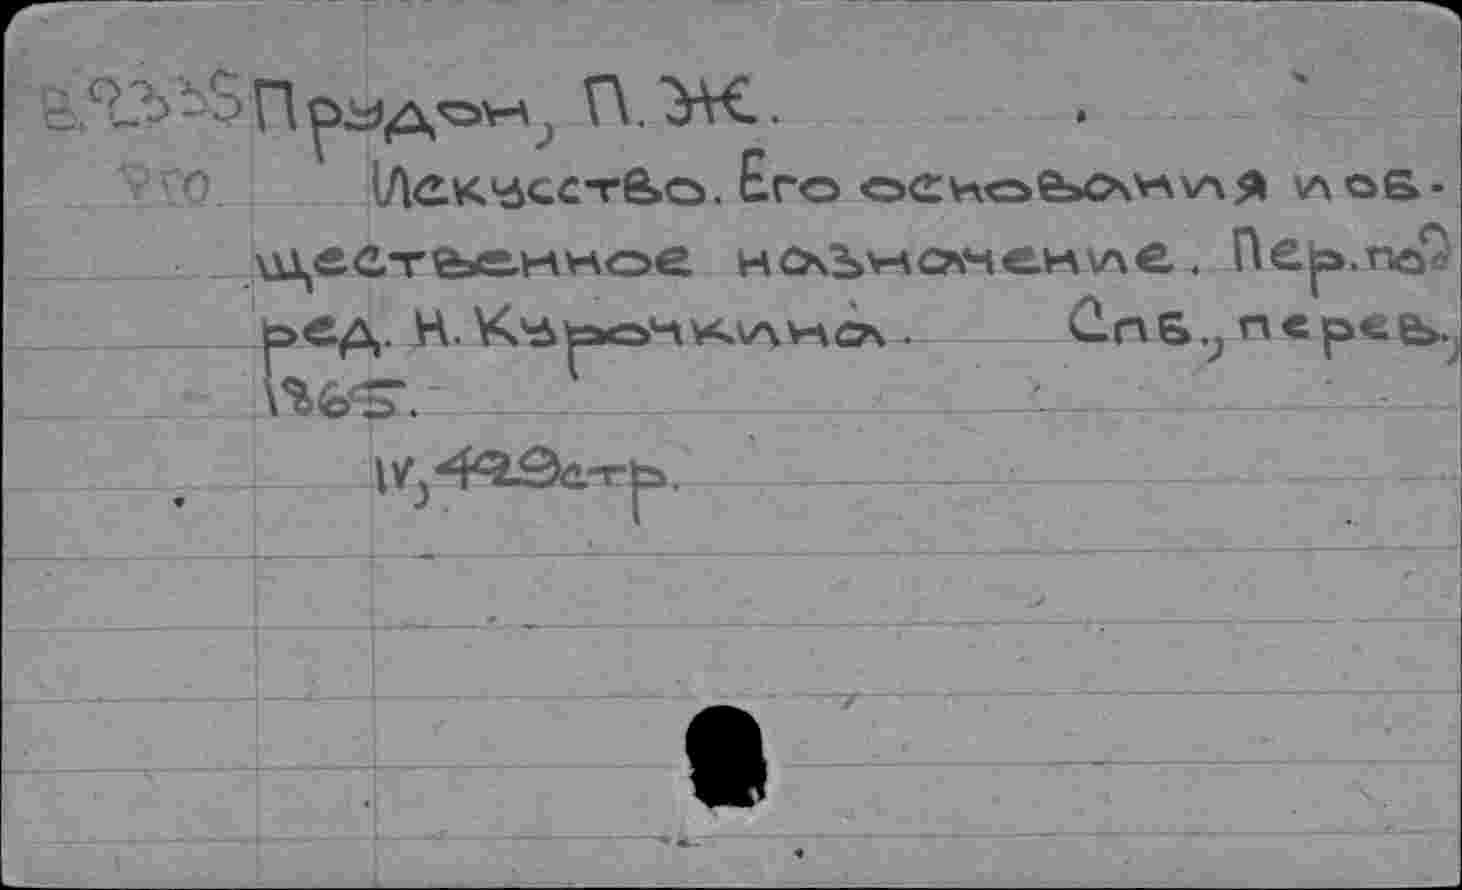 Прудон, П. Ж.
Искусство. Его основания и об-
щественное назначение. Пер. под
ред. Н. Курочкина. Спб., перев.,
1865.